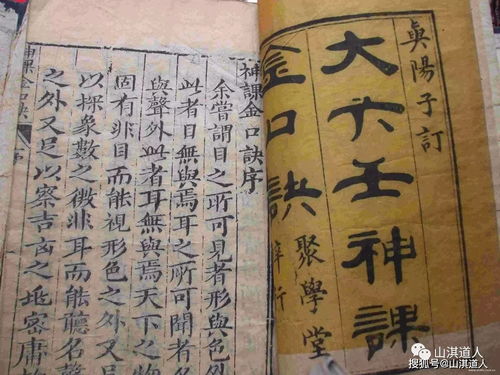 眞陽子訂
大六壬神課
金口訣
聚學堂
梓行
神課金口訣序
余嘗謂目之所可見者形與色外
此者目無與焉耳之所可聞者名
與聲外此者耳無與焉天下之物
固有非目而能視形色之外又足
以探象數之微非耳而能聽名聲
之外又足以察吉凶之密庸
神課金口訣
山淇道人
搜狐号@山淇道人